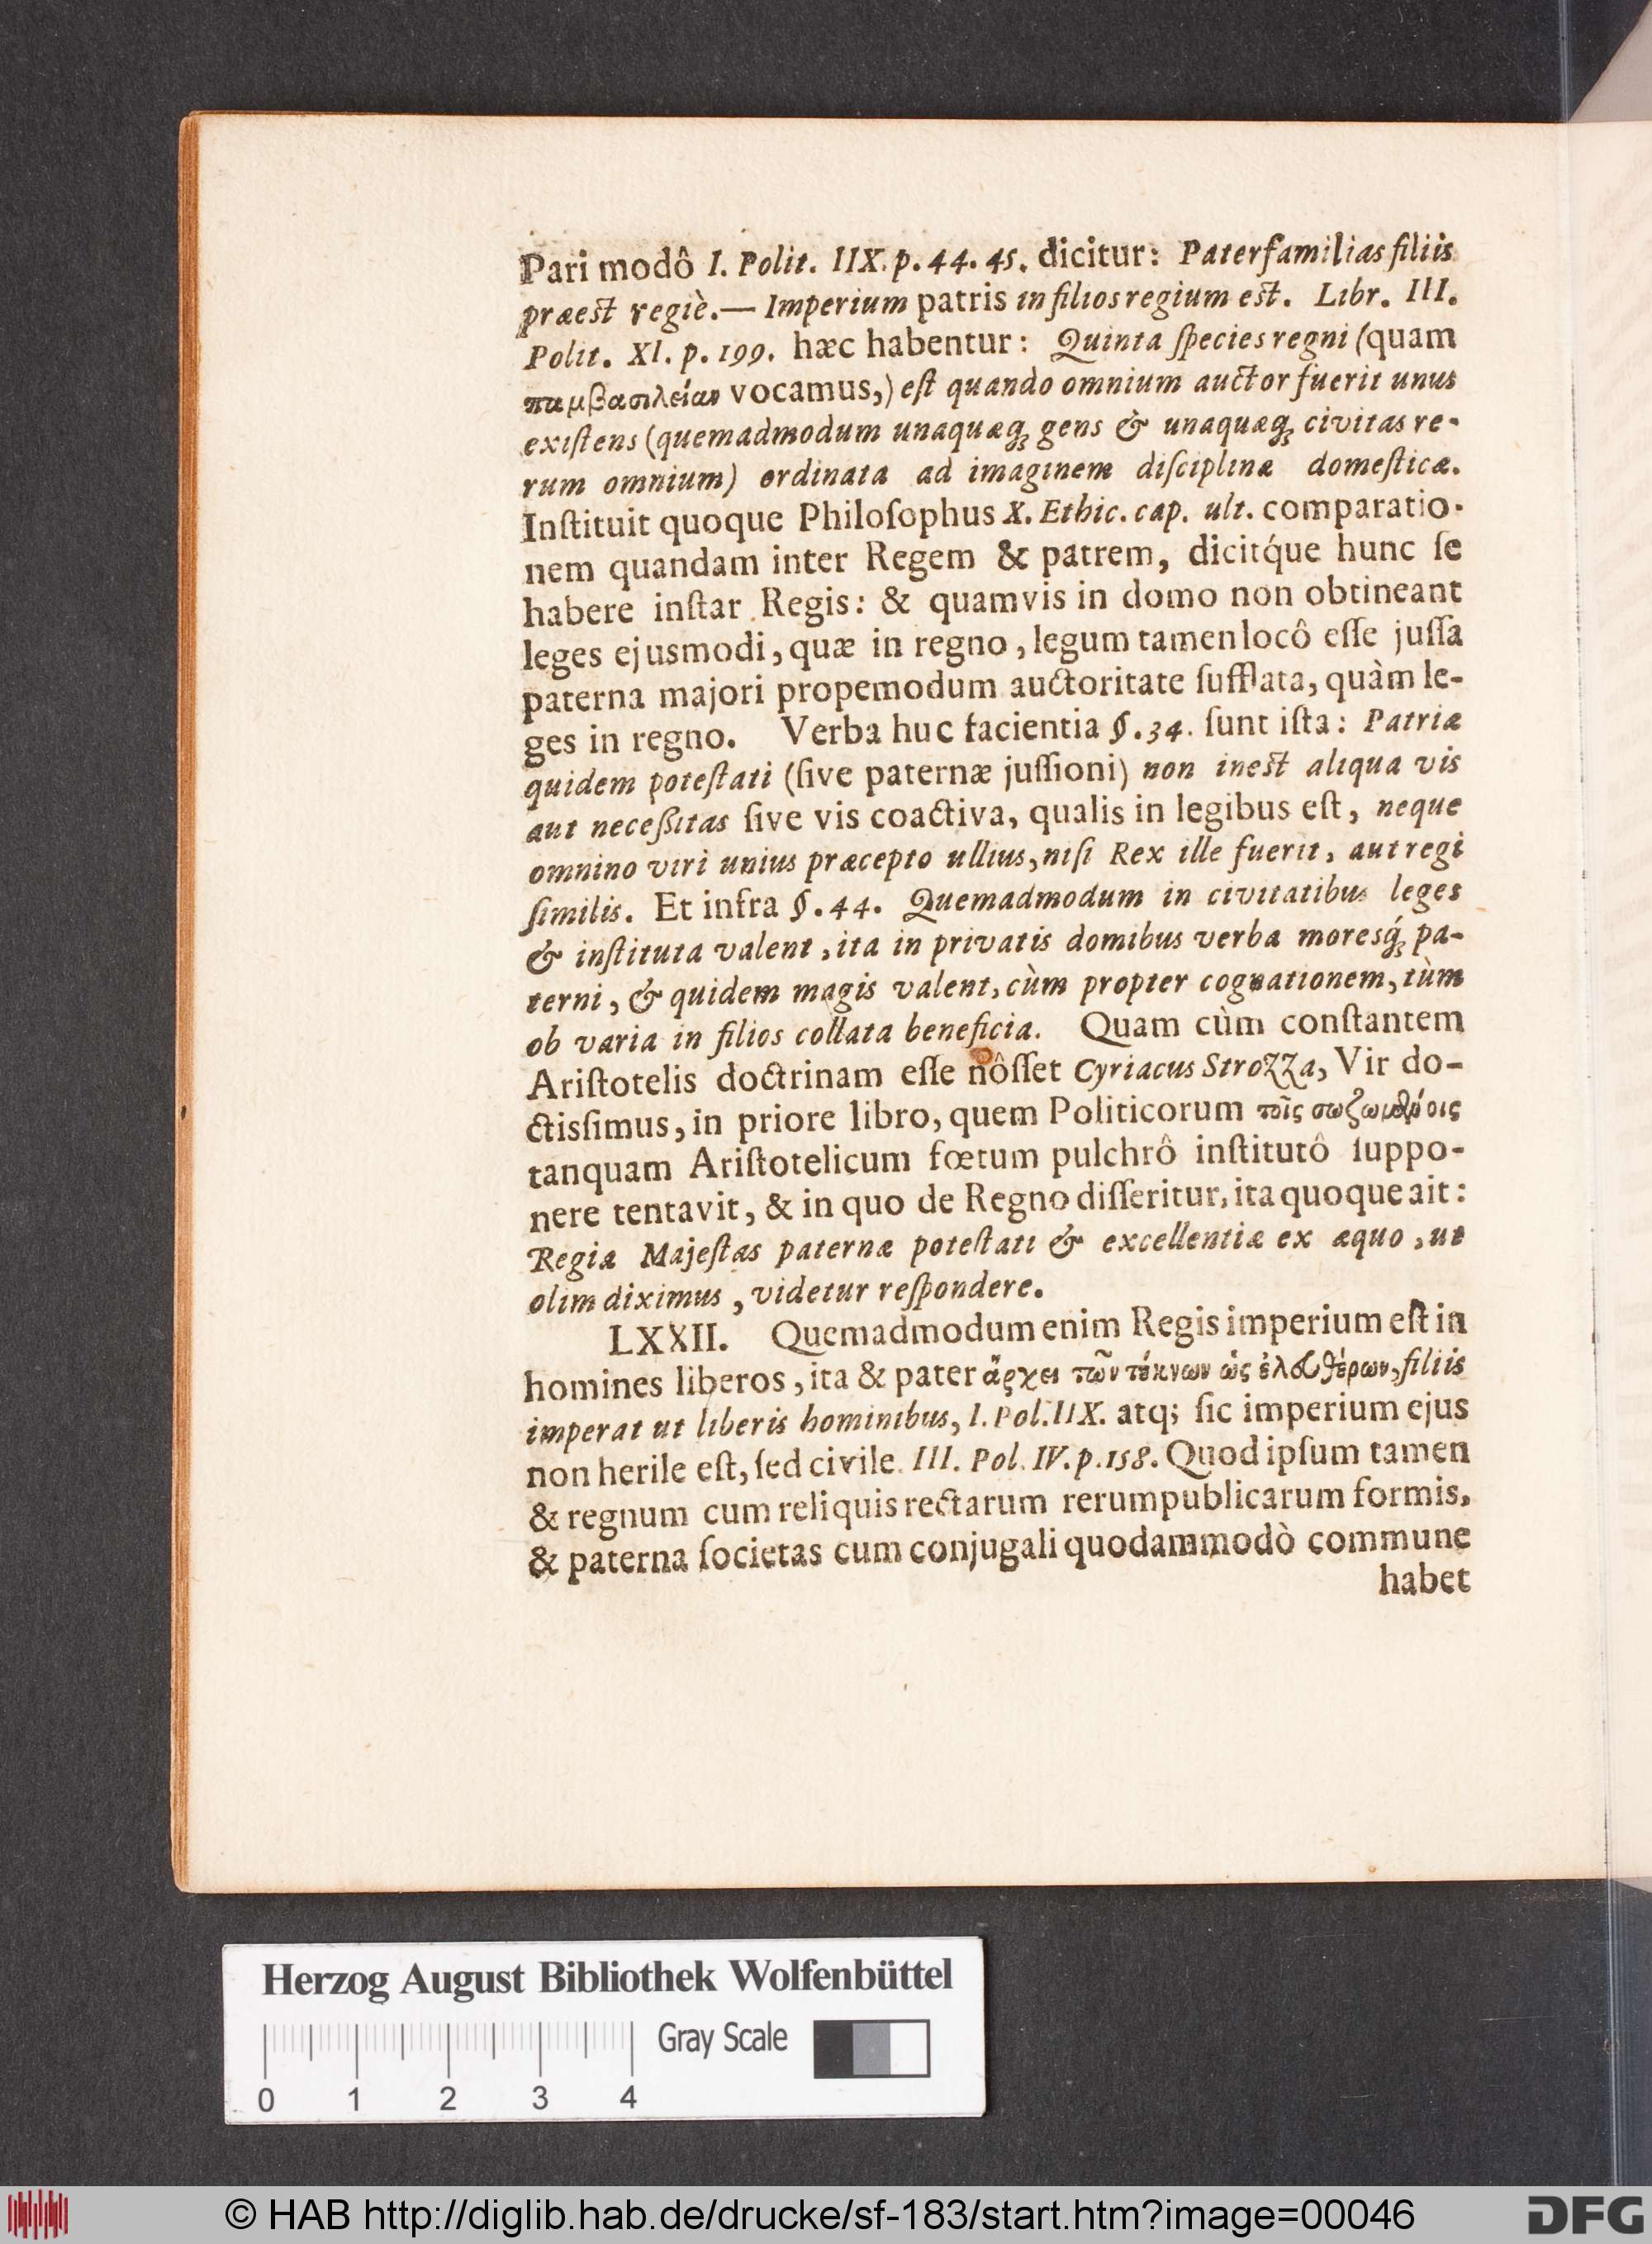 Pari modô I. Polit. IIX. p. 44. 45. dicitur: Paterfamilias filiis
præest regiè.— Imperium patris in filios regium est. Libr. III.
Polit. XI. p. 199. hæc habentur: Quinta ſpecies regni (quam
παμβασιλείαν vocamus,) eſt quando omnium auctor fuerit unus
exiſtens (quemadmodum unaquæq́; gens & unaquæq́; civitas re-
rum omnium) ordinata ad imaginem diſciplinæ domeſticæ.
Inſtituit quoque Philoſophus X. Ethic. cap. ult. comparatio-
nem quandam inter Regem & patrem, dicitq́ue hunc ſe
habere inſtar Regis: & quamvis in domo non obtineant
leges ejusmodi, quæ in regno, legum tamen locô eſſe juſſa
paterna majori propemodum auctoritate ſufflata, quàm le-
ges in regno. Verba huc facientia §. 34. ſunt iſta: Patriæ
quidem poteſtati (ſive paternæ juſſioni) non inest aliqua vis
aut neceßitas ſive vis coactiva, qualis in legibus eſt, neque
omnino viri unius præcepto ullius, niſi Rex ille fuerit, aut regi
ſimilis. Et infra §. 44. Quemadmodum in civitatibus leges
& inſtituta valent, ita in privatis domibus verba moresq́; pa-
terni, & quidem magis valent, cùm propter cognationem, tùm
ob varia in filios collata beneficia. Quam cùm conſtantem
Ariſtotelis doctrinam eſſe nôſſet Cyriacus Strozza, Vir do-
ctisſimus, in priore libro, quem Politicorum τοῖς σωζωμένοις
tanquam Ariſtotelicum fœtum pulchrô inſtitutô ſuppo-
nere tentavit, & in quo de Regno diſſeritur, ita quoque ait:
Regia Majeſtas paternæ poteſtati & excellentiæ ex æquo, ut
olim diximus, videtur reſpondere.
LXXII. Quemadmodum enim Regis imperium eſt in
homines liberos, ita & pater ἄρχει τῶν τέκνων ὡς ἐλευθέρων, filiis
imperat ut liberis hominibus, I. Pol. IIX. atq; ſic imperium ejus
non herile eſt, ſed civile. III. Pol. IV. p. 158. Quod ipſum tamen
& regnum cum reliquis rectarum rerumpublicarum formis,
& paterna ſocietas cum conjugali quodammodò commune
habet
Herzog August Bibliothek Wolfenbüttel
Gray Scale
0 1 2 3 4
© HAB http://diglib.hab.de/drucke/sf-183/start.htm?image=00046
DFG